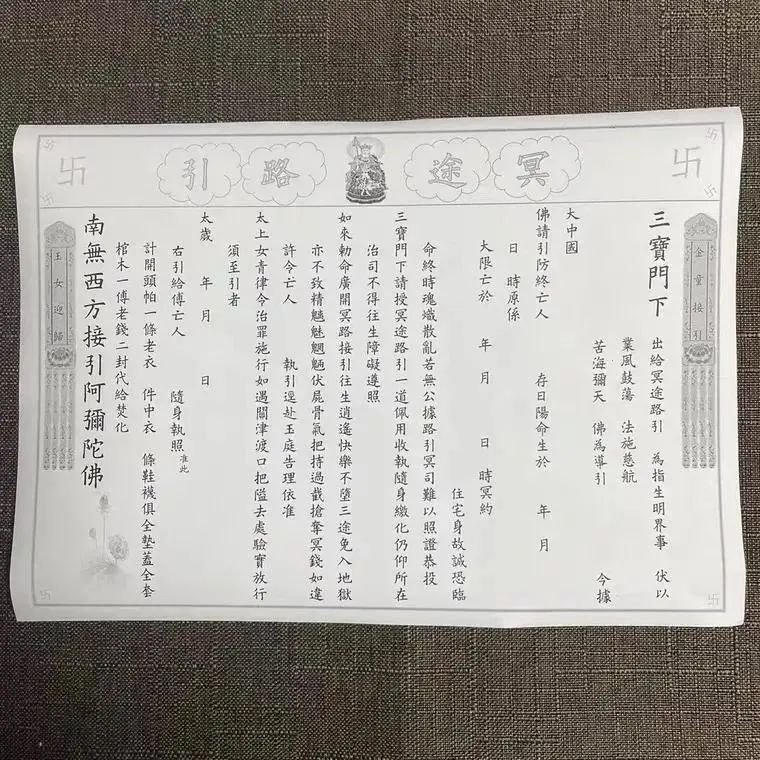 冥途路引
金童接引
三寶門下 出給冥途路引 為指生明界事 伏以
業風鼓蕩 法施慈航
苦海彌天 佛為導引 今據
大中國
佛請引防終亡人 存日陽命生於 年 月
日 時原係
大限亡於 年 月 日 時冥約
住宅身故誠恐臨
命終時魂熾散亂若無公據路引冥司難以照證恭投
三寶門下請授冥途路引一道佩用收執隨身繳化仍仰所在
治司不得往生障礙遵照
如來勅命廣開冥路接引往生逍遙快樂不墮三途免入地獄
亦不致精魑魅魍魎伏屍骨氣把持過截搶奪冥錢如違
許令亡人 執引逕赴玉庭告理依准
太上女青律令治罪施行如遇關津渡口把隘去處驗實放行
須至引者
太歲 年 月 日
右引給傅亡人 隨身執照 准此
計開頭帕一條老衣 件中衣 條鞋襪俱全墊蓋全套
棺木一傅老錢二封代給焚化
南無西方接引阿彌陀佛
玉女迎歸